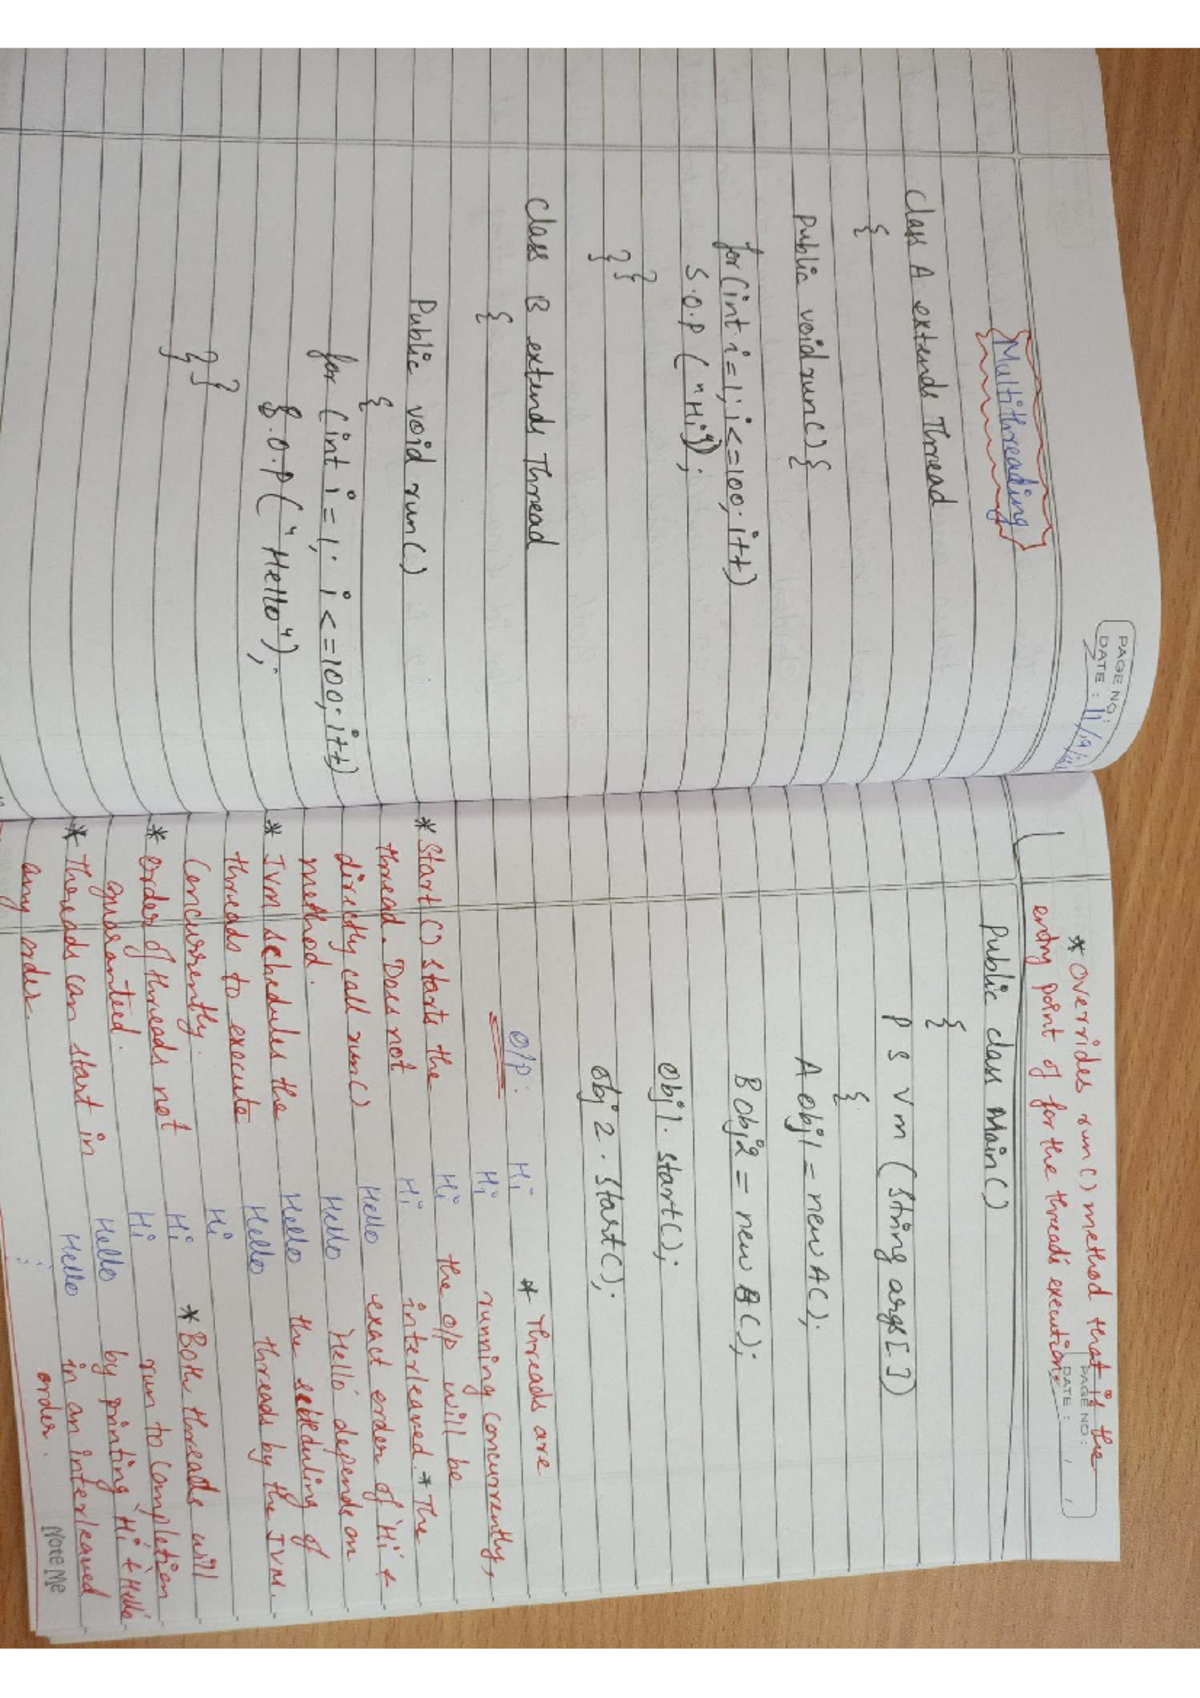 PAGE NO.:
DATE: 11/9/
Multithreading
Class A extends Thread
{
Public void run() {
for (int i = 1; i <= 100; i++)
S.O.P ("Hi");
}
}
Class B extends Thread
{
Public void run()
{
for (int i = 1; i <= 100; i++)
S.O.P ("Hello");
}
}
PAGE NO.:
DATE:
* Overrides run() method that is the
entry point of for the threads execution.
Public class Main()
{
P S V m (String args[])
{
A obj1 = new A();
B obj2 = new B();
obj1.start();
obj2.start();
O/P:
Hi
Hi
Hi
Hi
Hello
Hello
Hello
Hello
Hi
Hi
Hi
Hello
Hello
:
* Start() starts the
thread. Does not
directly call run()
method.
* JVM schedules the
threads to execute
Concurrently.
* Order of threads not
guaranteed.
* Threads can start in
any order.
* Threads are
running concurrently,
the o/p will be
interleaved. * The
exact order of 'Hi' +
'Hello' depends on
the scheduling of
threads by the JVM.
* Both threads will
run to completion
by printing 'Hi' + 'Hello'
in an interleaved
order.
Note Me